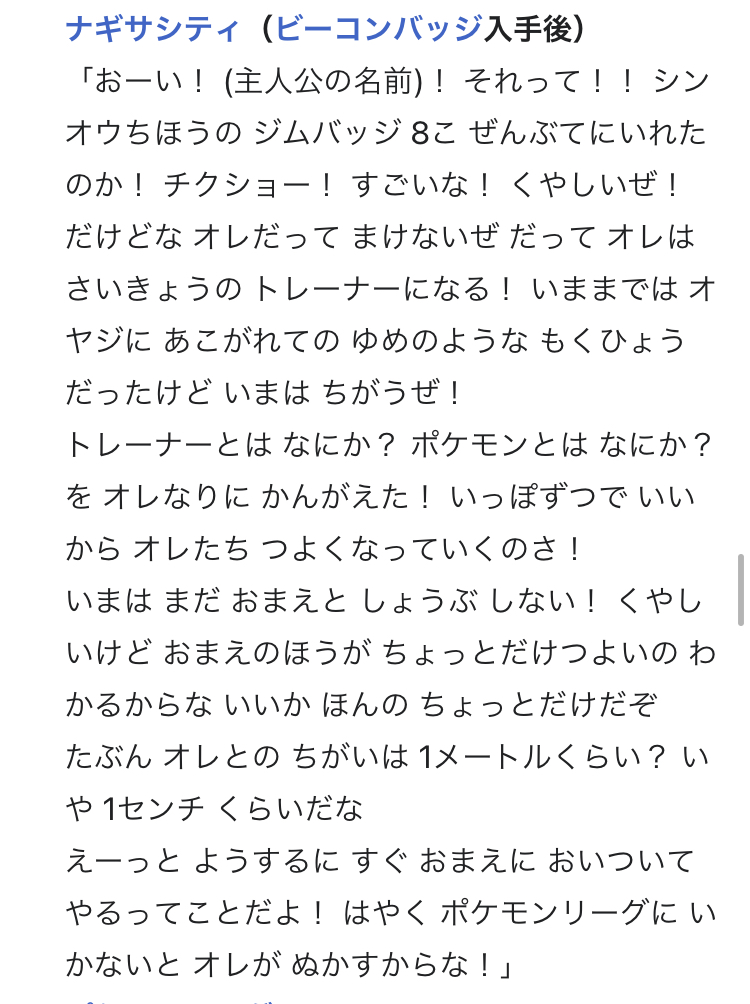 ナギサシティ（ビーコンバッジ入手後）
「おーい！ (主人公の名前)！ それって！！ シン
オウちほうの ジムバッジ 8こ ぜんぶてにいれた
のか！ チクショー！ すごいな！ くやしいぜ！
だけどな オレだって まけないぜ だって オレは
さいきょうの トレーナーになる！ いままでは オ
ヤジに あこがれての ゆめのような もくひょう
だったけど いまは ちがうぜ！
トレーナーとは なにか？ ポケモンとは なにか？
を オレなりに かんがえた！ いっぽずつで いい
から オレたち つよくなっていくのさ！
いまは まだ おまえと しょうぶ しない！ くやし
いけど おまえのほうが ちょっとだけつよいの わ
かるからな いいか ほんの ちょっとだけだぞ
たぶん オレとの ちがいは 1メートルくらい？ い
や 1センチ くらいだな
えーっと ようするに すぐ おまえに おいついて
やるってことだよ！ はやく ポケモンリーグに い
かないと オレが ぬかすからな！」